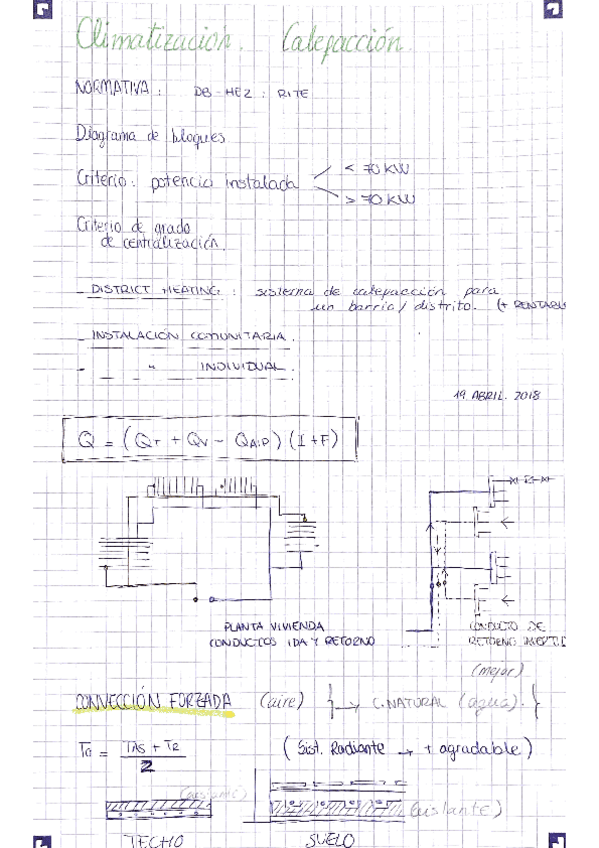 Climatización. Calefacción.
NORMATIVA: DB-HE2: RITE
Diagrama de bloques
Criterio: potencia instalada < 70 KW
> 70 KW
Criterio de grado
de centralización.
- DISTRICT HEATING: sistema de calefacción para
un barrio/distrito. (+ RENTABLE
- INSTALACIÓN COMUNITARIA.
- " INDIVIDUAL.
19 ABRIL. 2018
Q = (QT + QV - QAIP) (I+F)
PLANTA VIVIENDA
CONDUCTOS IDA Y RETORNO
CONDUCTO DE
RETORNO
(mejor)
CONVECCIÓN FORZADA (aire) } → C. NATURAL (agua). }
Ta = TAS + TR
2
(Sist. Radiante → + agradable)
(aislante)
(aislante)
TECHO SUELO